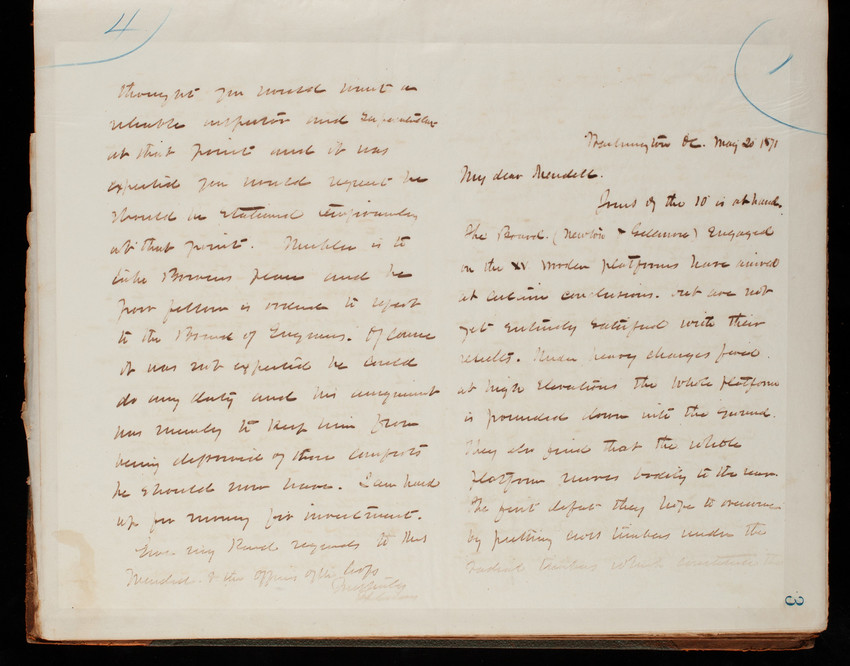 4
thought you would want a
reliable inspector and
at that point and it was
expected you would request he
should be stationed temporarily
at that point. is to
take place and he
poor fellow is ordered to report
to the Board of Engineers. Of course
it was not expected he could
do any duty and his assignment
was merely to keep him from
being deprived of those comforts
he should now have. I am hard
up for money for investment.
Give my kind regards to Mrs
Mendell & the officers of the Corps
1
Washington DC. May 20 1871
My dear Mendell.
Yours of the 10" is at hand.
The Board (Newton & Gillmore) Engaged
on the XV wooden platforms have arrived
at certain conclusions. but are not
yet entirely satisfied with their
results. Under heavy charges fired
at high Elevations the whole platform
is pounded down into the ground.
They also find that the whole
platform moves bodily to the rear.
The first defect they hope to overcome
by putting cross timbers under the
timbers which constitute the
3